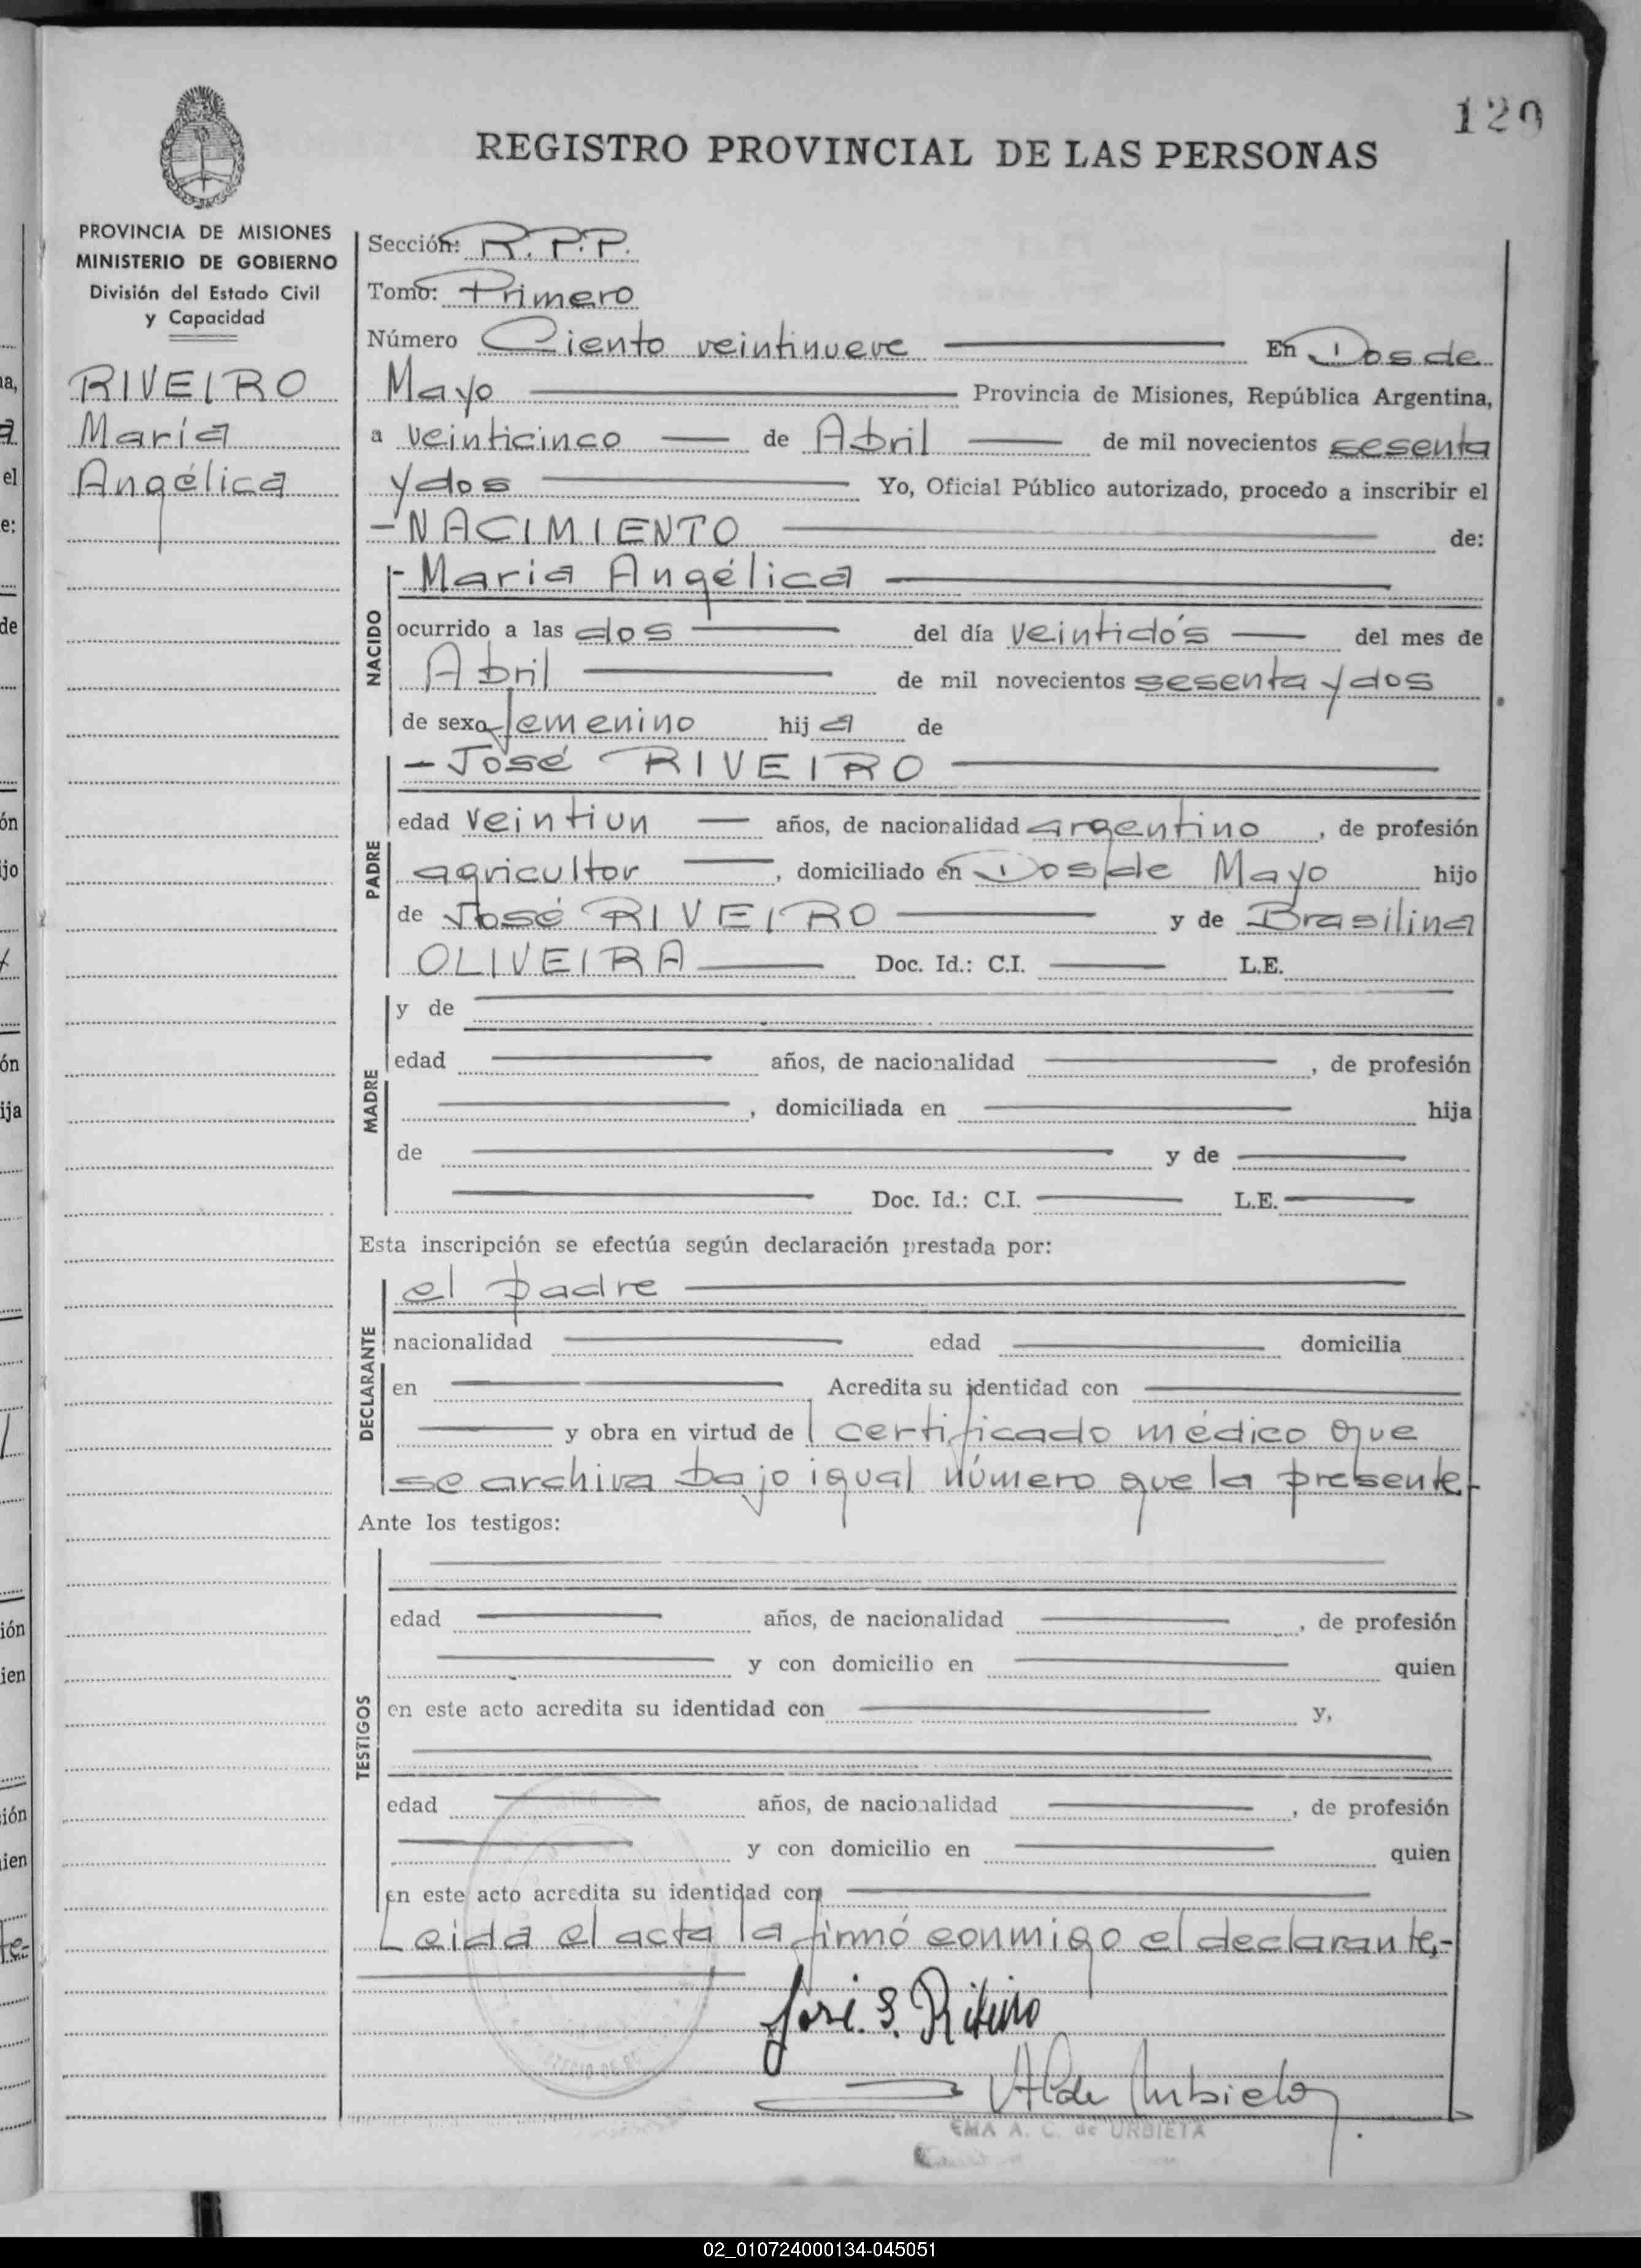 120
REGISTRO PROVINCIAL DE LAS PERSONAS
PROVINCIA DE MISIONES
MINISTERIO DE GOBIERNO
División del Estado Civil
y Capacidad
RIVEIRO
María
Angélica
Sección: R.P.P.
Tomo: Primero
Número Ciento veintinueve En Dos de
Mayo Provincia de Misiones, República Argentina,
a veinticinco de Abril de mil novecientos sesenta
y dos Yo, Oficial Público autorizado, procedo a inscribir el
-NACIMIENTO de:
NACIDO
- Maria Angélica
ocurrido a las dos del día veintidós del mes de
Abril de mil novecientos sesenta y dos
de sexo femenino hija de
PADRE
- José RIVEIRO
edad veintiun años, de nacionalidad argentino, de profesión
agricultor, domiciliado en Dos de Mayo hijo
de José RIVEIRO y de Brasilina
OLIVEIRA Doc. Id.: C.I. L.E.
MADRE
y de
edad años, de nacionalidad , de profesión
, domiciliada en hija
de y de
Doc. Id.: C.I. L.E.
Esta inscripción se efectúa según declaración prestada por:
DECLARANTE
el padre
nacionalidad edad domicilia
en Acredita su identidad con
y obra en virtud de certificado médico que
se archiva bajo igual número que la presente-
Ante los testigos:
TESTIGOS
edad años, de nacionalidad , de profesión
y con domicilio en quien
en este acto acredita su identidad con y,
edad años, de nacionalidad , de profesión
y con domicilio en quien
en este acto acredita su identidad con
Leida el acta la firmó conmigo el declarante,-
José. S. Ribeiro
EMA A. C. de URBIETA
02_010724000134-045051